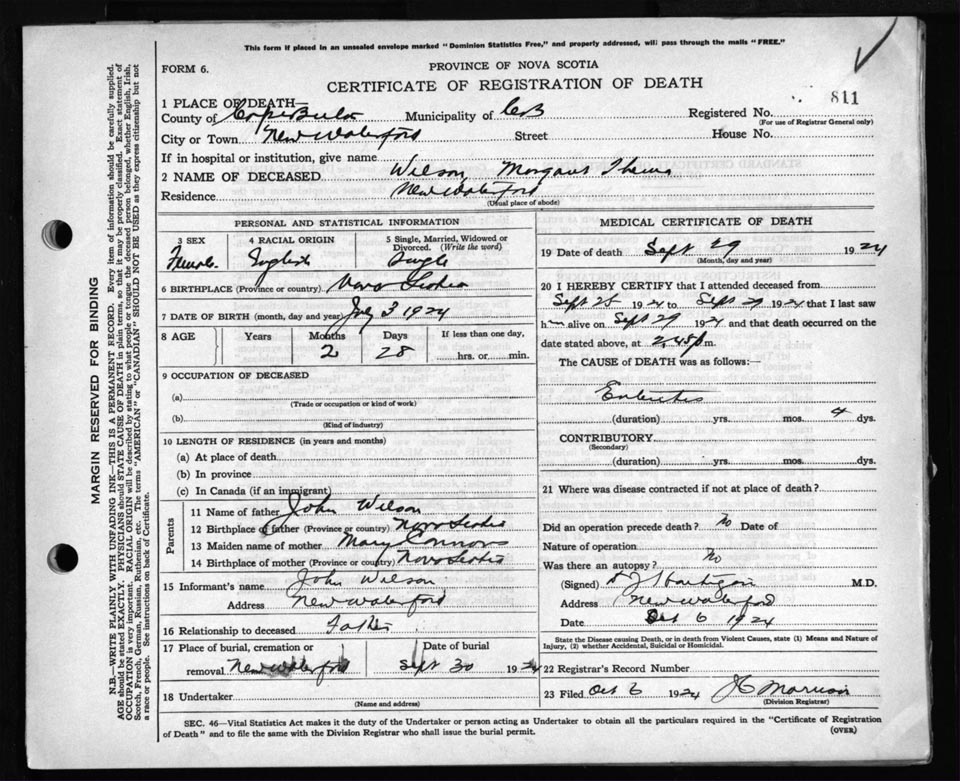 This form if placed in an unsealed envelope marked "Dominion Statistics Free," and properly addressed, will pass through the mails "FREE."
FORM 6.
PROVINCE OF NOVA SCOTIA
CERTIFICATE OF REGISTRATION OF DEATH
811
1 PLACE OF DEATH—
County of Cape Breton Municipality of CB Registered No.
(For use of Registrar General only)
City or Town New Waterford Street House No.
If in hospital or institution, give name
2 NAME OF DECEASED Wilson
Residence New Waterford
(Usual place of abode)
PERSONAL AND STATISTICAL INFORMATION
3 SEX 4 RACIAL ORIGIN 5 Single, Married, Widowed or Divorced. (Write the word)
Female English Single
6 BIRTHPLACE (Province or country) Nova Scotia
7 DATE OF BIRTH (month, day and year) July 3 1924
8 AGE Years Months Days If less than one day,
2 28 hrs. or min.
9 OCCUPATION OF DECEASED
(a)
(Trade or occupation or kind of work)
(b)
(Kind of industry)
10 LENGTH OF RESIDENCE (in years and months)
(a) At place of death
(b) In province
(c) In Canada (if an immigrant)
Parents
11 Name of father John Wilson
12 Birthplace of father (Province or country) Nova Scotia
13 Maiden name of mother Mary Connors
14 Birthplace of mother (Province or country) Nova Scotia
15 Informant's name John Wilson
Address New Waterford
16 Relationship to deceased Father
17 Place of burial, cremation or removal New Waterford Date of burial Sept 30 1924
18 Undertaker
(Name and address)
MEDICAL CERTIFICATE OF DEATH
19 Date of death Sept 29 1924
(Month, day and year)
20 I HEREBY CERTIFY that I attended deceased from
Sept 25 1924 to Sept 29 1924 that I last saw
h alive on Sept 29 1924 and that death occurred on the
date stated above, at 2.45 p.m.
The CAUSE of DEATH was as follows:
Enteritis
(duration) yrs. mos. 4 dys.
CONTRIBUTORY
(Secondary)
(duration) yrs. mos. dys.
21 Where was disease contracted if not at place of death?
Did an operation precede death? No Date of
Nature of operation
Was there an autopsy? No
(Signed) M.D.
Address New Waterford
Date Oct 6 1924
State the Disease causing Death, or in death from Violent Causes, state (1) Means and Nature of
Injury, (2) whether Accidental, Suicidal or Homicidal.
22 Registrar's Record Number
23 Filed Oct 6 1924
(Division Registrar)
SEC. 46—Vital Statistics Act makes it the duty of the Undertaker or person acting as Undertaker to obtain all the particulars required in the "Certificate of Registration
of Death" and to file the same with the Division Registrar who shall issue the burial permit.
(OVER)
MARGIN RESERVED FOR BINDING
N.B.—WRITE PLAINLY WITH UNFADING INK—THIS IS A PERMANENT RECORD. Every item of information should be carefully supplied.
AGE should be stated EXACTLY. PHYSICIANS should STATE CAUSE OF DEATH in plain terms, so that it may be properly classified. Exact statement of
OCCUPATION is very important. RACIAL ORIGIN will be described by stating to what people or tongue the deceased person belonged, whether English, Irish,
Scotch, French, German, Russian, Ruthenian, etc. The terms "AMERICAN" or "CANADIAN" SHOULD NOT BE USED as they express citizenship but not
a race or people. See instructions on back of Certificate.